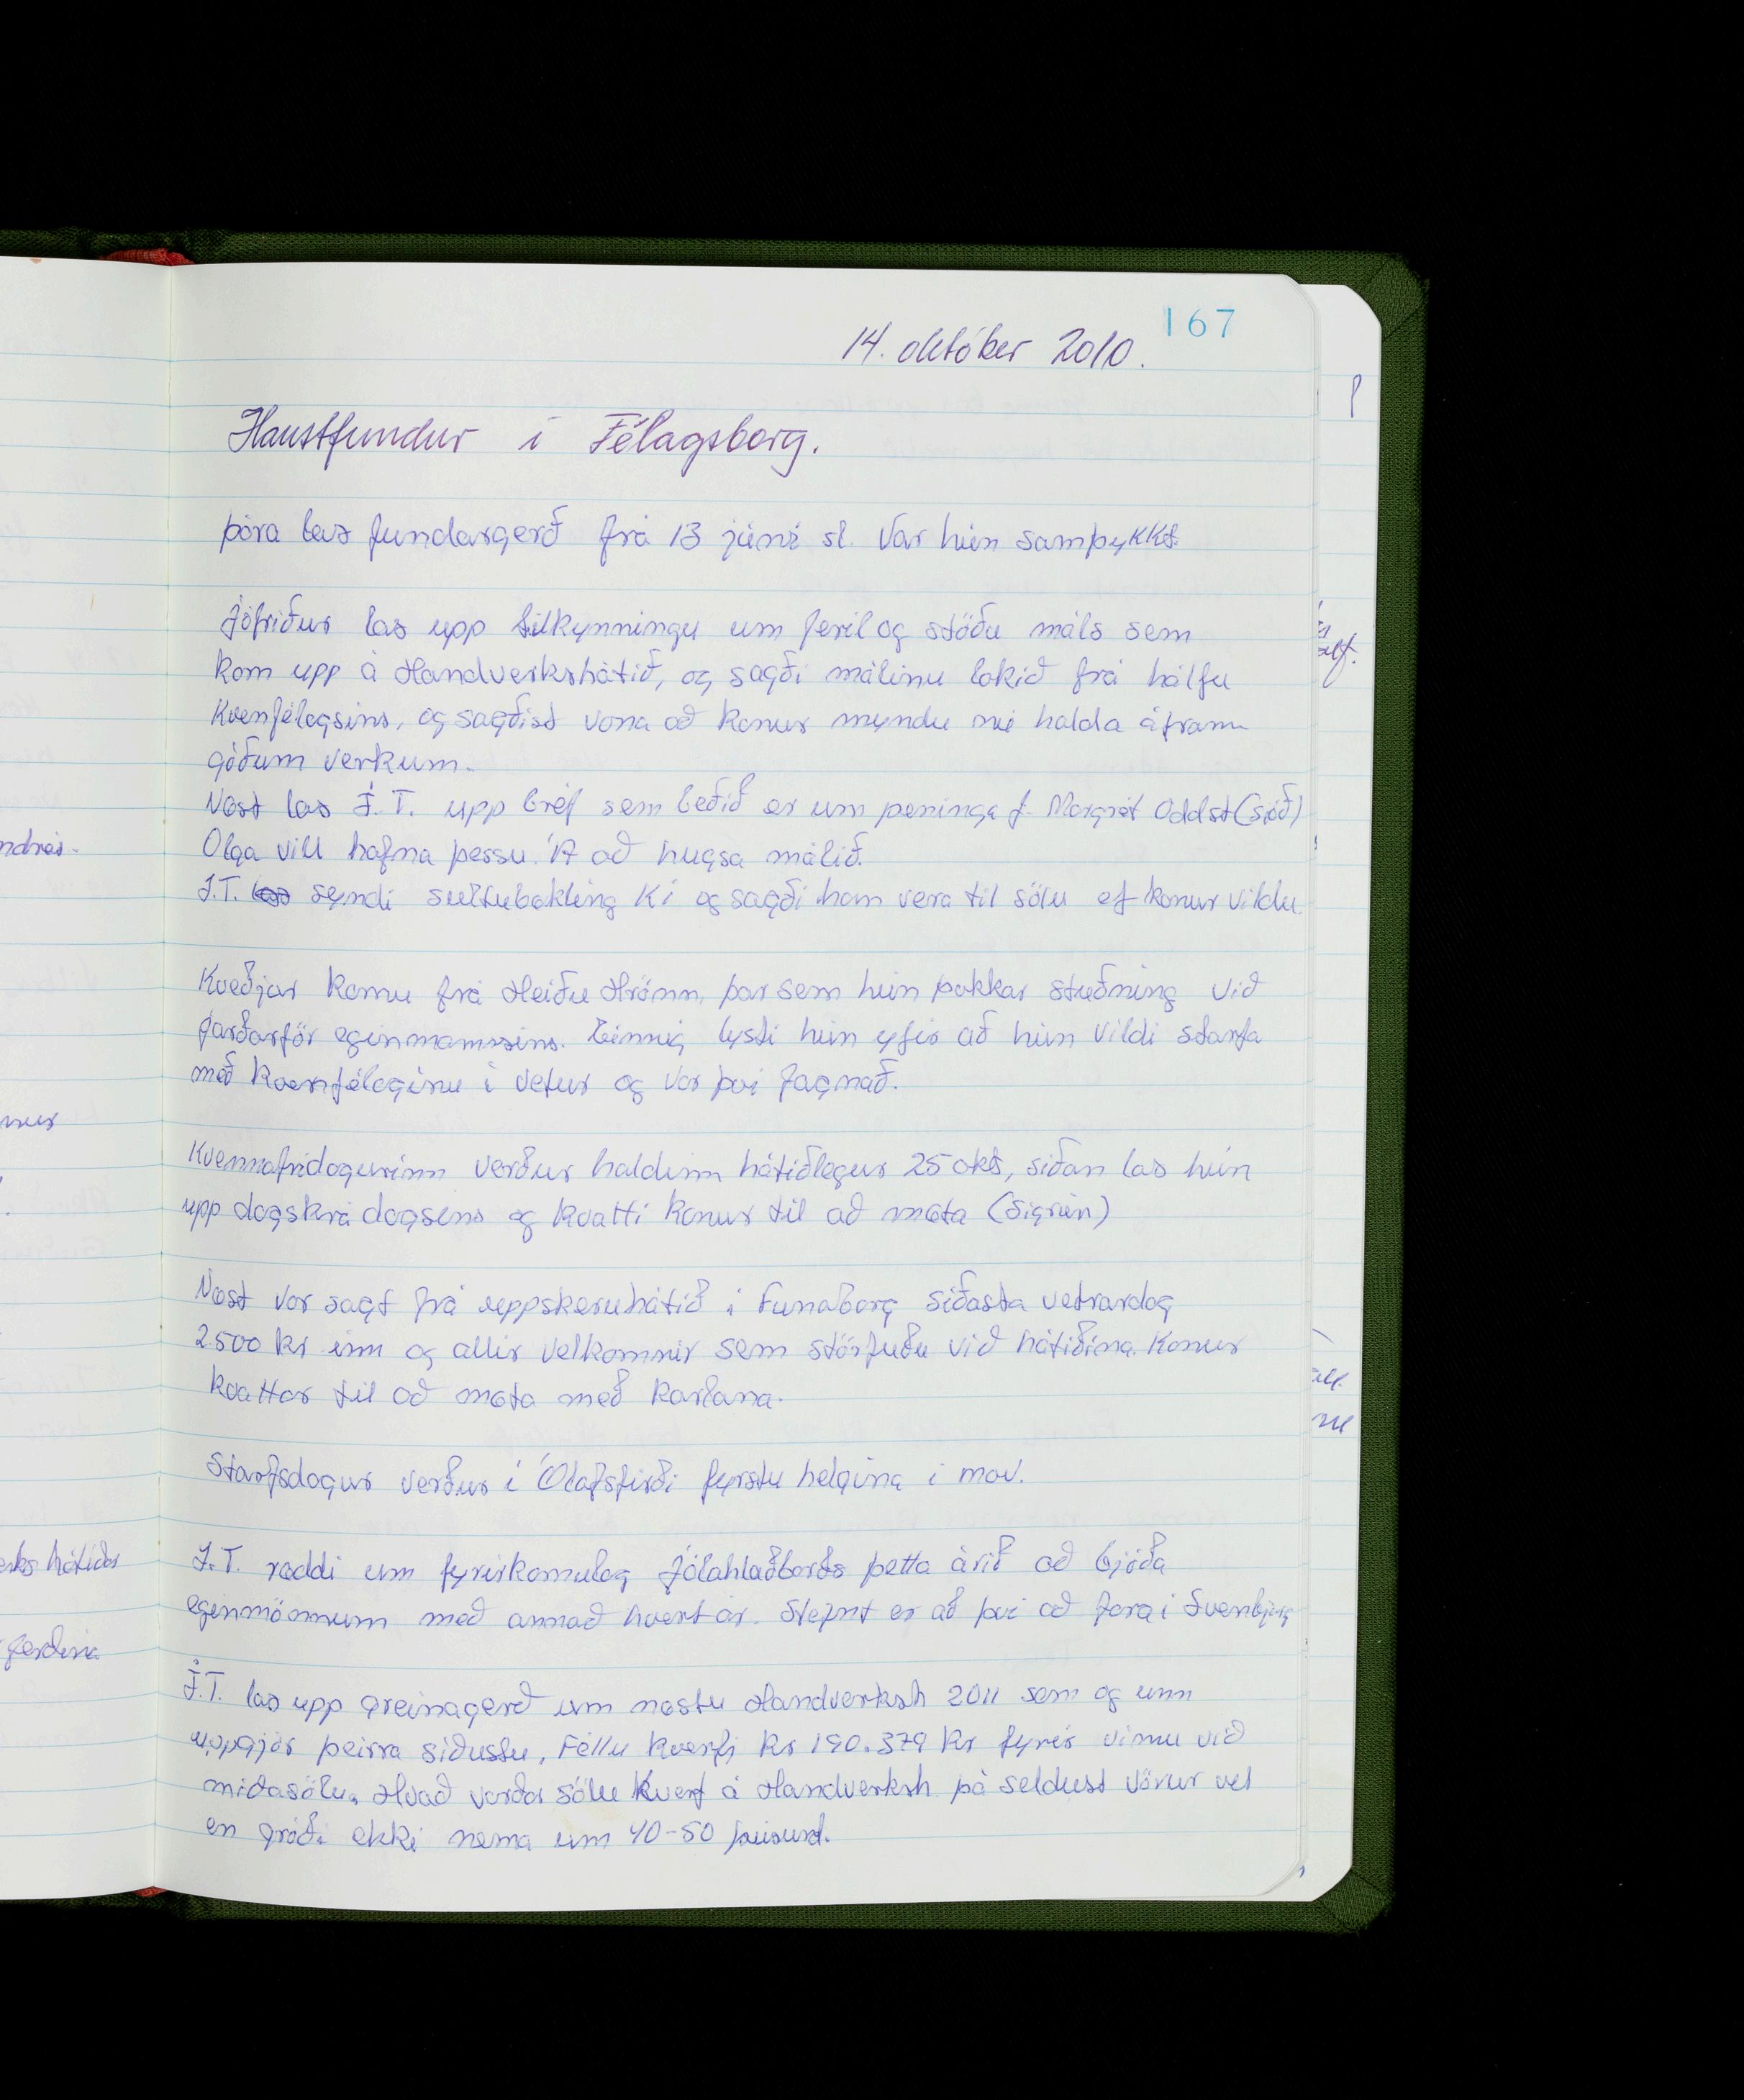 167
14. október 2010.
Haustfundur í Félagsborg.
Þóra las fundargerð frá 13 júní sl. Var hún samþykkt.
Jófríður las upp tilkynningu um feril og stöðu máls sem
kom upp á Handverkshátíð, og sagði málinu lokið frá hálfu
Kvenfélagsins, og sagðist vona að konur myndu nú halda áfram
góðum verkum.
Næst las J.T. upp bréf sem beðið er um peninga f. Margrét Oddst (sjóð)
Olga vill hafna þessu. Á að hugsa málið.
J.T. las sýndi sultubækling KÍ og sagði hann vera til sölu ef konur vildu.
Kveðjur komu frá Heiðu Hrönn, þar sem hún þakkar stuðning við
jarðarför eginmannsins. Einnig lýsti hún yfir að hún vildi starfa
með kvenfélaginu í vetur og var því fagnað.
Kvennafrídagurinn verður haldinn hátíðlegur 25 okt, síðan las hún
upp dagskrá dagsins og kvatti konur til að mæta (Sigrún)
Næst var sagt frá uppskeruhátíð í Funaborg síðasta vetrardag
2500 kr inn og allir velkomnir sem störfuðu við hátíðina. Konur
kvattar til að mæta með karlana.
Starfsdagur verður í Ólafsfirði fyrstu helgina í nóv.
J.T. ræddi um fyrirkomulag Jólahlaðborðs þetta árið að bjóða
eginmönnum með annað hvert ár. Stefnt er að því að fara í Sveinbjarg
J.T. las upp greinagerð um næstu Handverksh 2011 sem og unn
uppgjör þeirra síðustu, Féllu kvenfj kr 190.379 kr fyrir vinnu við
miðasölu. Hvað varðar sölu Kvenf á Handverksh. þá seldust vörur vel
en gróði ekki nema um 40-50 þúsund.